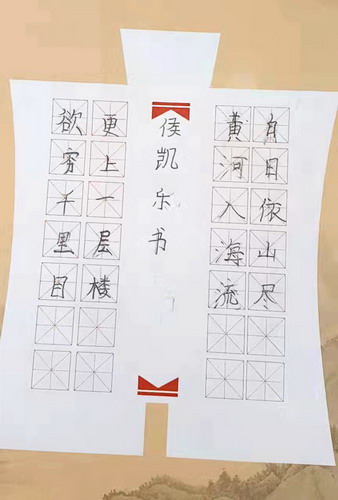 白日依山尽
黄河入海流
欲穷千里目
更上一层楼
侯凯乐书